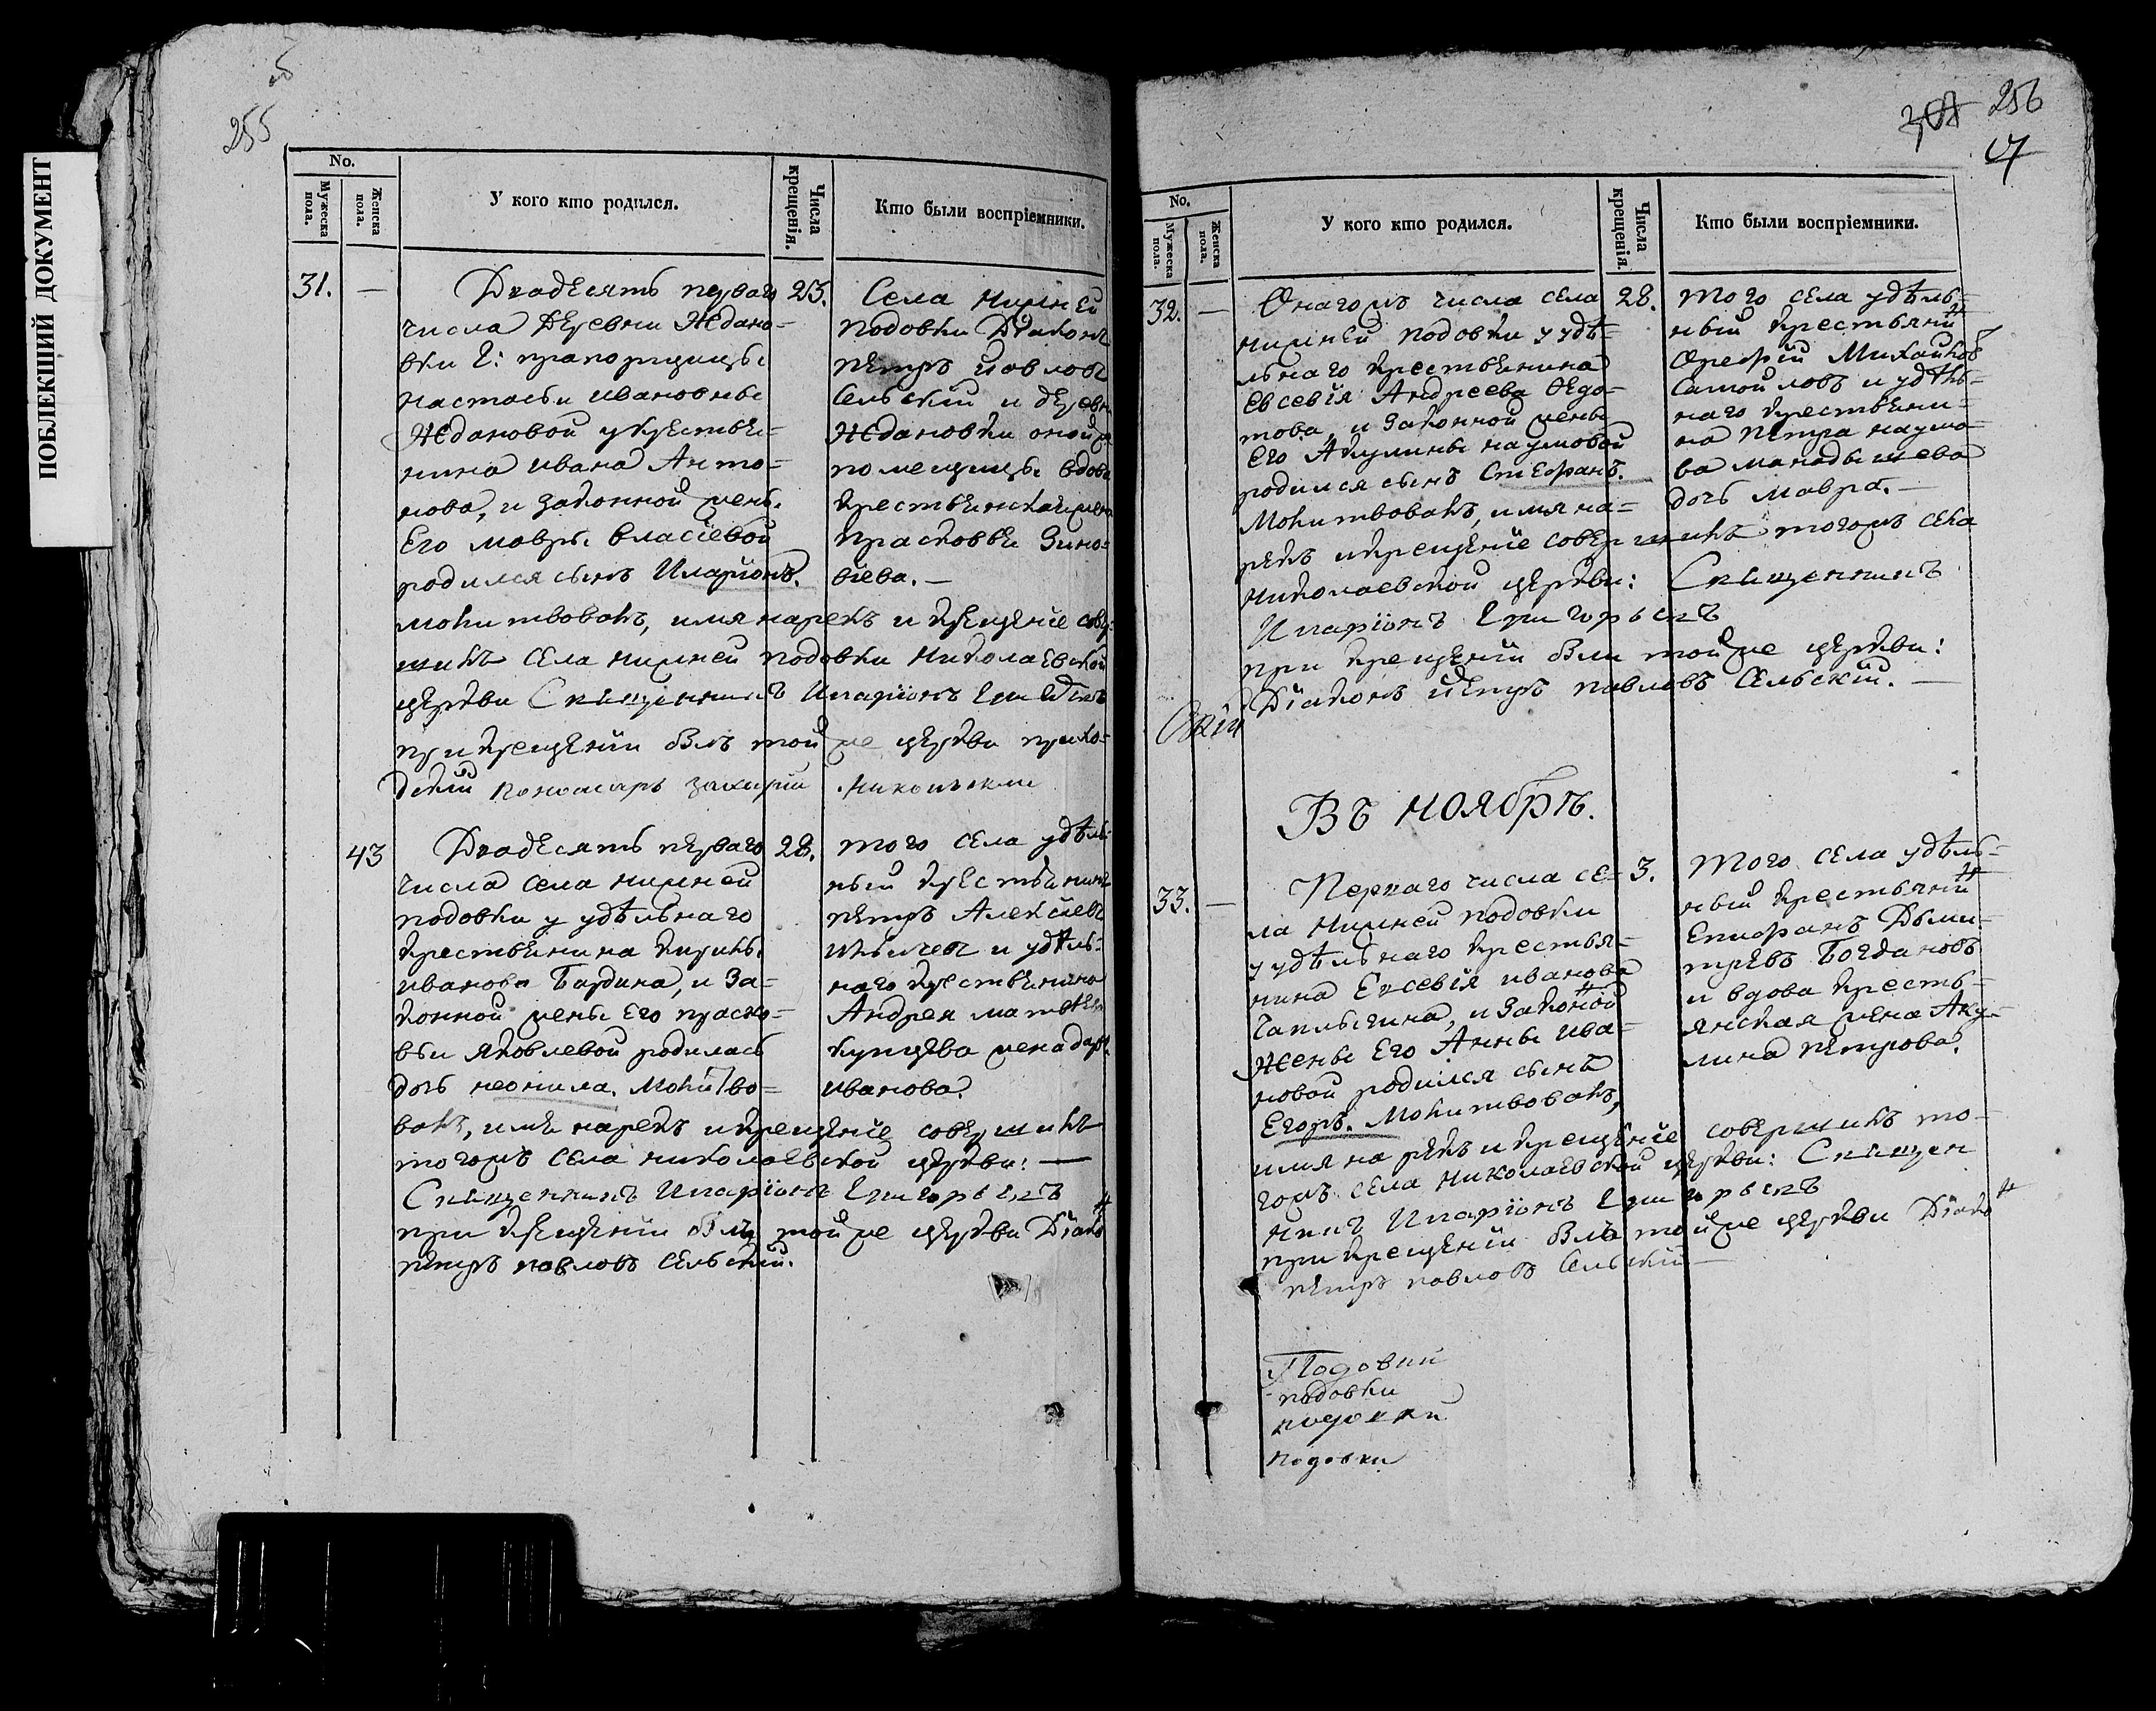 ПОБЛЕКШИЙ ДОКУМЕНТ
об
255
No.
Мужеска пола.
Женска пола.
У кого кто родился.
Числа крещенія.
Кто были воспріемники.
31. —
Двадесять перваго
числа деревни Ждано-
вки Г: прапорщицы
настасьи ивановны
Ждановой у крестьѧ-
нина ивана Анто-
нова, и законной жены
Его мавры власіевой
родился сынъ Иларіонъ.
молитвовалъ, имя нарекъ и крещеніе совер-
шилъ села нижней подовки николаевской
церкви Священникъ Иларіонъ
при крещеніи былъ той же церкви прихо-
дскій пономарь захарій никольскій
25.
Села нижней
подовки Діаконъ
петръ павловъ
Сельскій и деревни
Ждановки оной же
помещицы вдова
крестьянская жена
прасковья Зино-
віева. —
43
Двадесять перваго
числа села нижней
подовки у удѣльнаго
крестьянина кирилы
иванова Бардина, и за-
конной жены Его праско-
вьи яковлевой родилась
дочь неонила. Молитво-
валъ, имя нарекъ и крещеніе совершилъ
тогожъ села николаевской церкви: —
Священникъ Иларіонъ Григорьевъ
при крещеніи былъ той же церкви Діаконъ
петръ павловъ Сельскій.
28.
того села удѣль-
ный крестьянинъ
петръ Алексіевъ
и удѣль-
наго крестьянина
Андрея матвѣева
купцева жена дарья
иванова.
256
17
No.
Мужеска пола.
Женска пола.
У кого кто родился.
Числа крещенія.
Кто были воспріемники.
32. —
Онагожъ числа села
нижней подовки у удѣ-
льнаго крестьянина
Евсевія Андреева Федо-
това, и законной жены
Его Акулины наумовой
родился сынъ Стефанъ.
Молитвовалъ, имя на-
рекъ и крещеніе совершилъ тогожъ села
николаевской церкви: Священникъ
Иларіонъ Григорьевъ
при крещеніи былъ той же церкви:
Діаконъ петръ павловъ Сельскій. —
28.
того села удѣль-
ный крестьянинъ
Орефій Михайловъ
Самойловъ и удѣль-
наго крестьяни-
на петра наумо-
ва
дочь мавра. —
Въ ноябрѣ.
33. —
Перваго числа се-
ла нижней подовки
у удѣльнаго крестья-
нина Евсевія иванова
Чаплыгина, и законной
Жены Его Анны ива-
новой родился сынъ
Егоръ. Молитвовалъ,
имя нарекъ и крещеніе совершилъ то-
гожъ села николаевской церкви: Священ
никъ Иларіонъ Григорьевъ
при крещеніи былъ той же церкви Діаконъ
петръ павловъ Сельскій —
3.
того села удѣль-
ный крестьянинъ
Епифанъ Дьми-
тревъ Богдановъ
и вдова кресть-
янская жена Аку-
лина петрова.
Подовки
подовки
подовки
подовки